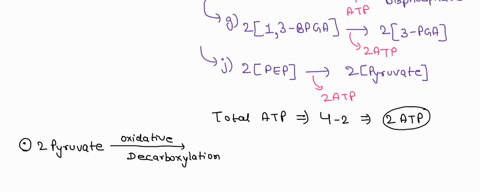 ATP
g) 2[1,3-BPGA] → 2[3-PGA]
2ATP
j) 2[PEP] → 2[Pyruvate]
2ATP
Total ATP ⇒ 4-2 ⇒ 2 ATP
2 Pyruvate oxidative →
Decarboxylation